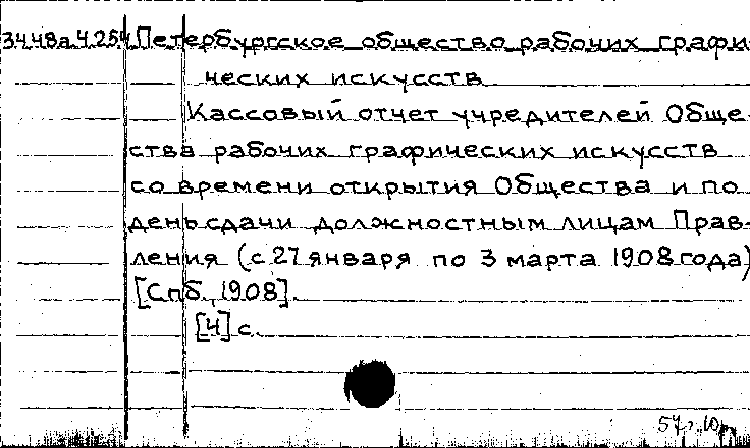 34.48а.4.254 Петербургское общество рабочих графи
ческих искусств
Кассовый отчет учредителей Обще
ства рабочих графических искусств
со времени открытия Общества и по
день сдачи должностным лицам Прав-
ления (с 27 января по 3 марта 1908 года)
[Спб., 1908].
[4] с.